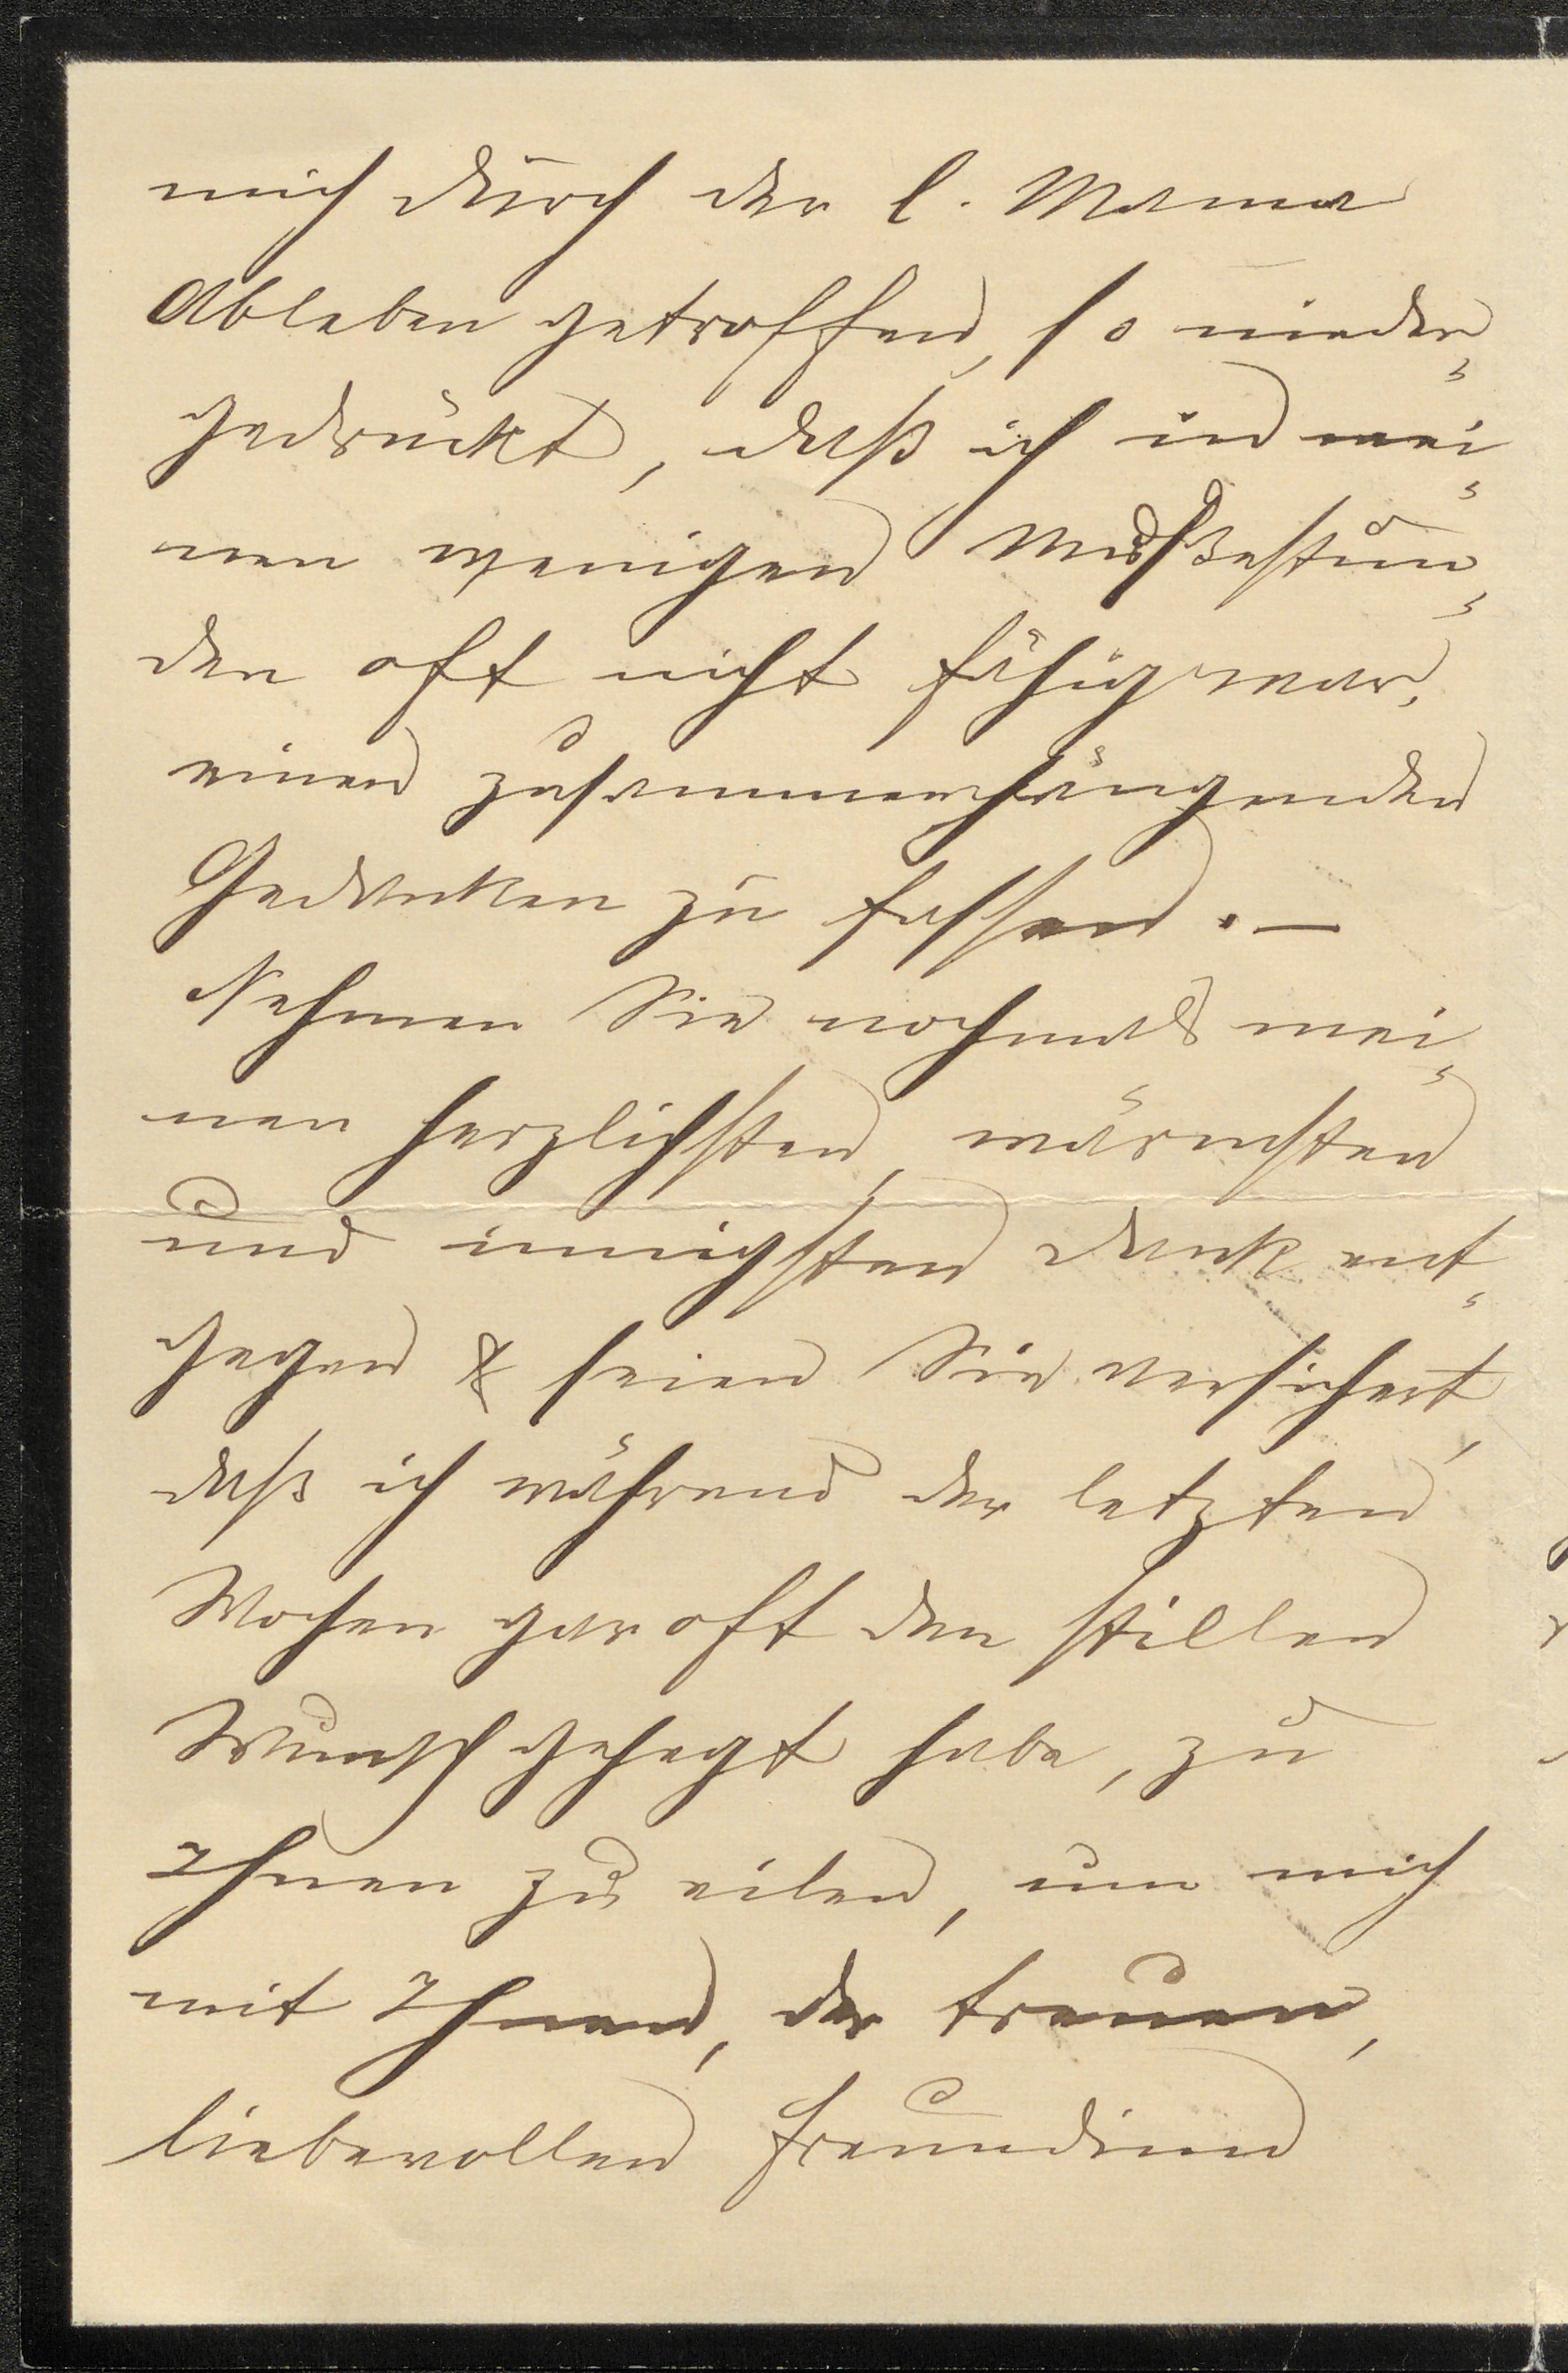 mich durch der l. Mama
Ableben getroffen, so nieder¬
gedrückt, daß ich in mei¬
nen wenigen Mußestun¬
den oft nicht fähig war,
einen zusammenhängenden
Gedanken zu fassen. –
Nehmen Sie nochmals mei¬
nen herzlichsten, wärmsten
und innigsten Dank ent¬
gegen & seien Sie versichert,
daß ich während der letzten
Wochen gar oft den stillen
Wunsch gehegt habe, zu
Ihnen zu eilen, um mich
mit Ihnen, der treuen,
liebevollen Freundinn